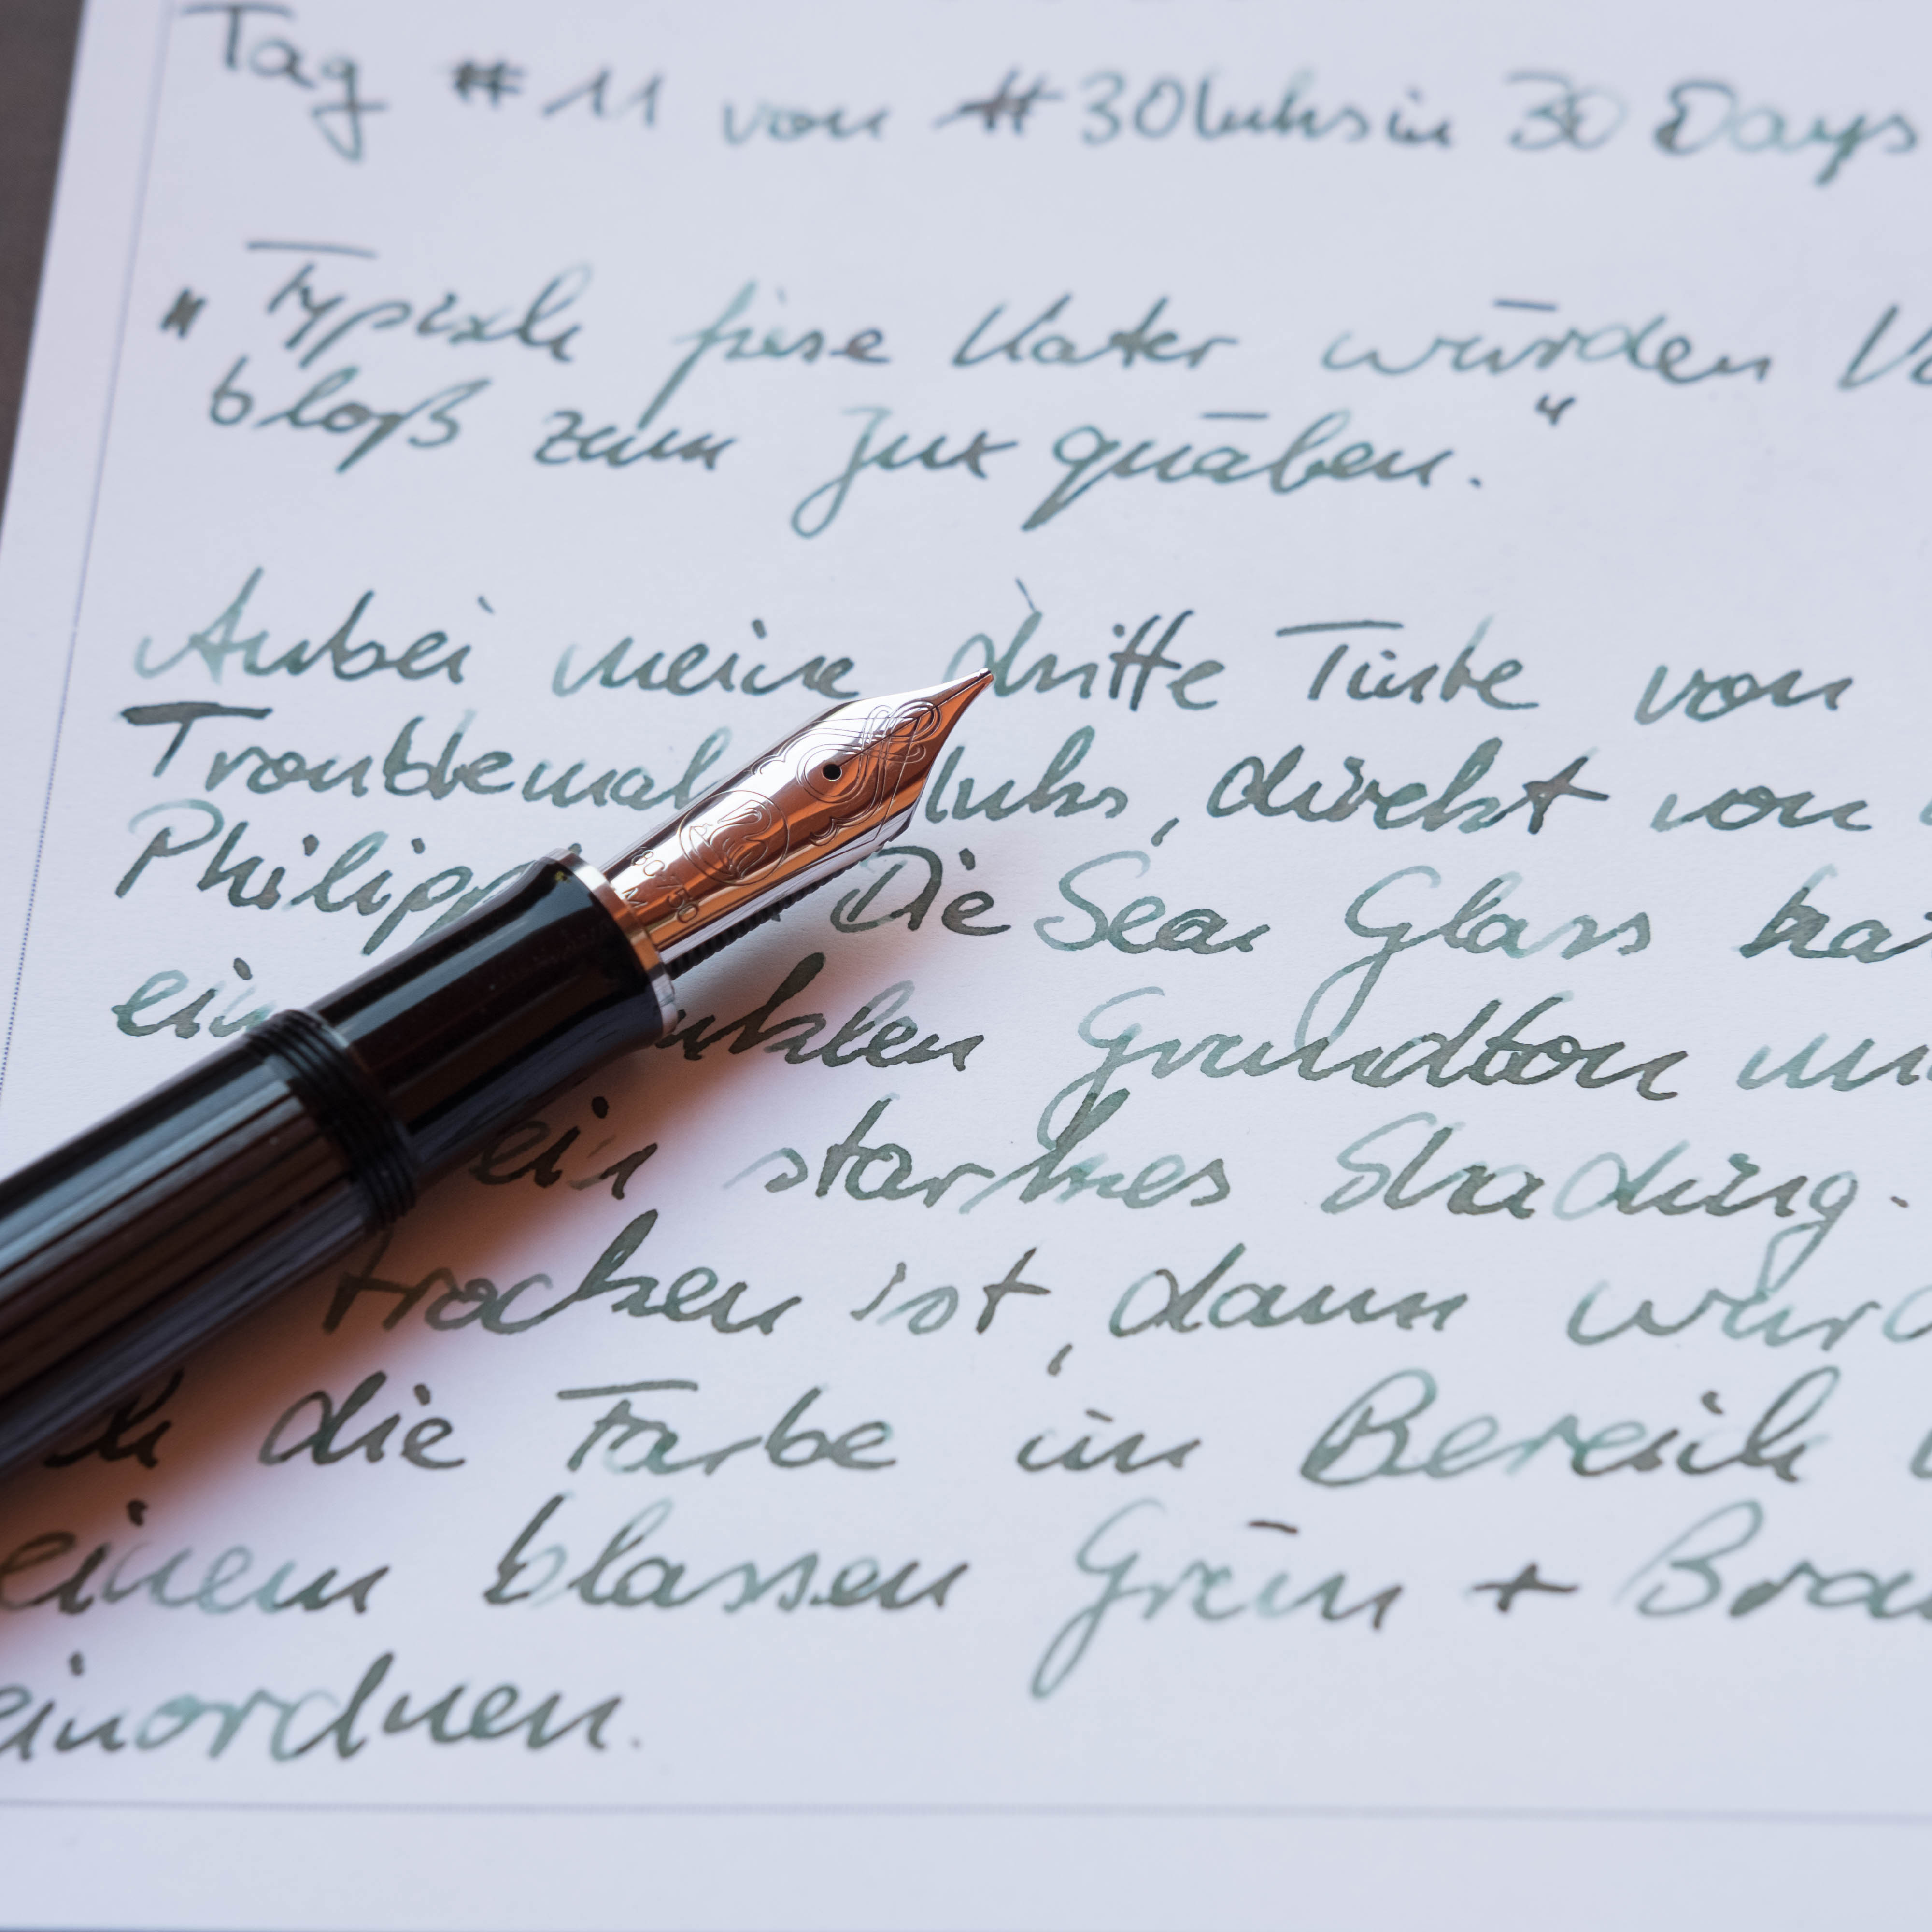 Tag #11 von #30Inksin 30 Days
"Typisch fiese Kater würden
bloß zum Jux quäben."
Anbei meine dritte Tinte von
Troublemak Inks, direkt von
Philipp Die Sea Glass hat
ein unklen Grundton un
ein starkes Shading.
trocken ist, dann würd
ch die Farbe im Bereich
einem blassen Grün + Brau
einordnen.
80/750
M